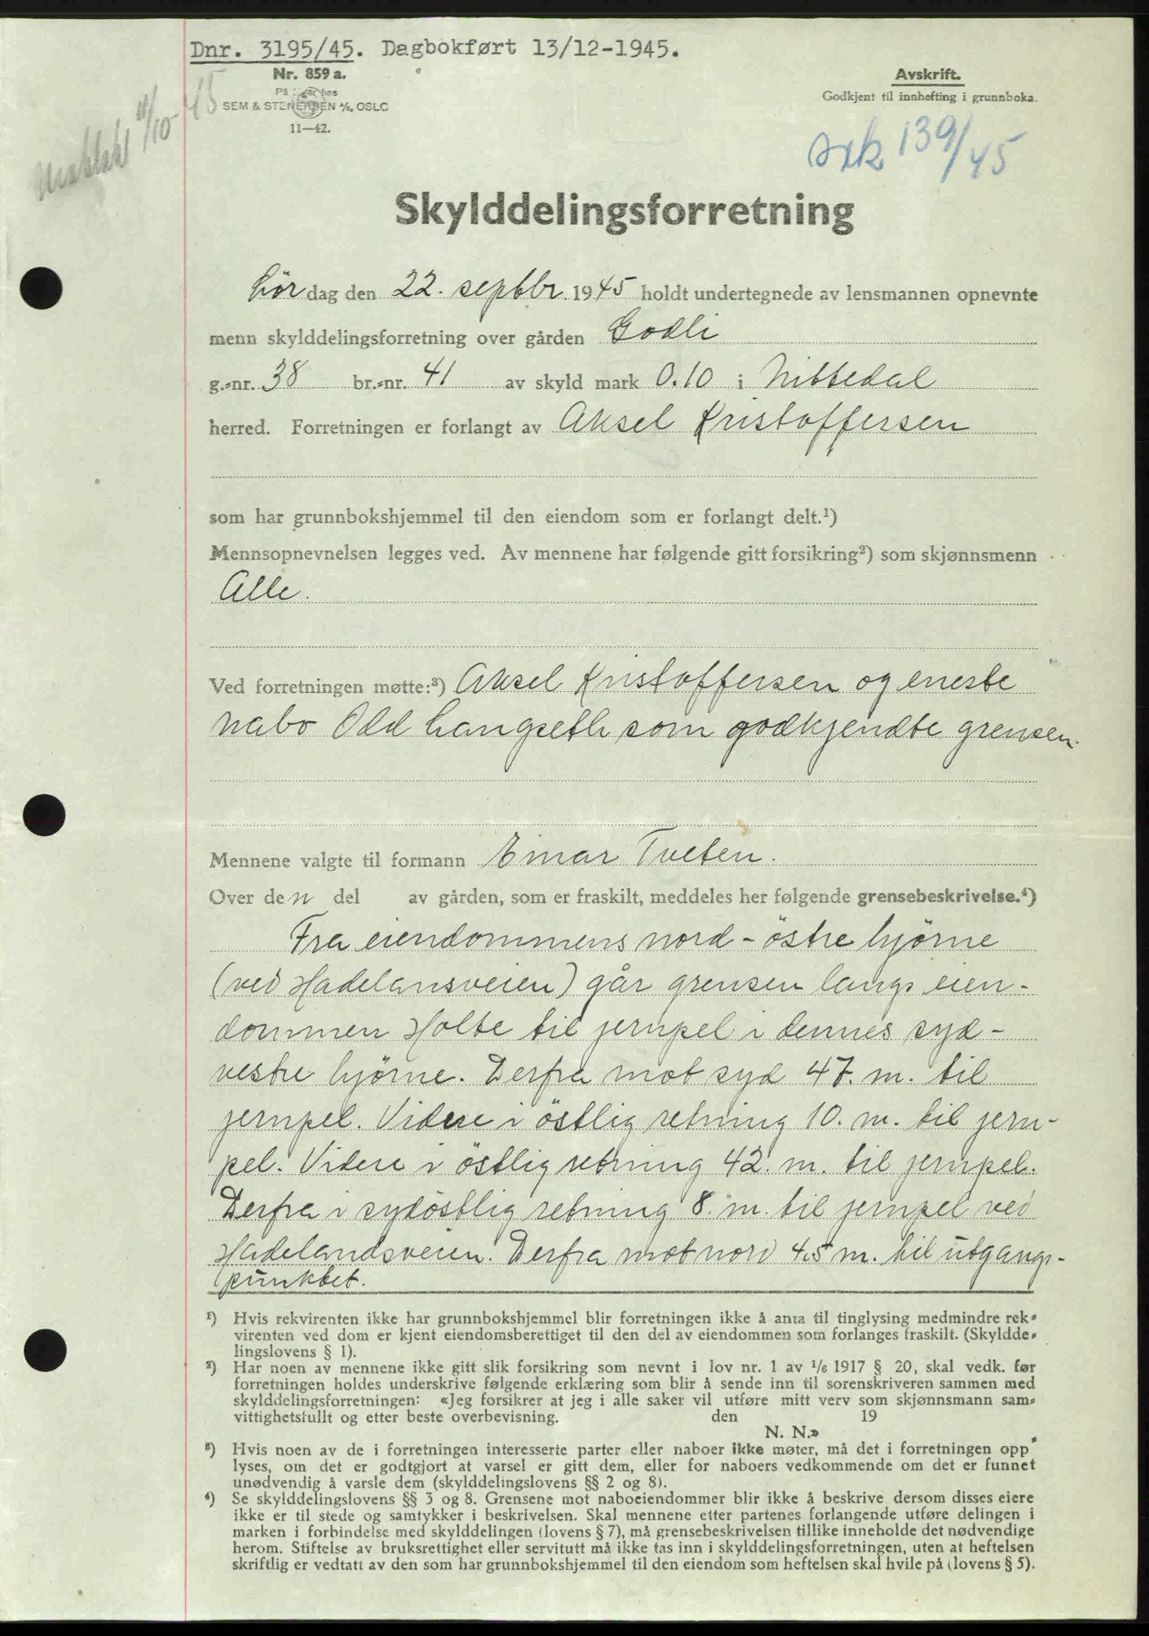 Dnr. 3195/45. Dagbokført 13/12-1945.
Nr. 859 a.
På lager hos
SEM & STENERSEN A/S, OSLO
11—42.
Avskrift.
Godkjent til innhefting i grunnboka.
11/10-45
139/45
Skylddelingsforretning
Lör dag den 22. septbr. 1945 holdt undertegnede av lensmannen opnevnte
menn skylddelingsforretning over gården Godli
g.-nr. 38 br.-nr. 41 av skyld mark 0.10 i Nittedal
herred. Forretningen er forlangt av Aksel Kristoffersen
som har grunnbokshjemmel til den eiendom som er forlangt delt.¹)
Mennsopnevnelsen legges ved. Av mennene har følgende gitt forsikring²) som skjønnsmenn
Alle.
Ved forretningen møtte:³) Aksel Kristoffersen og eneste
nabo Odd Langseth som godkjendte grensen.
Mennene valgte til formann Einar Tveten.
Over den del av gården, som er fraskilt, meddeles her følgende grensebeskrivelse.⁴)
Fra eiendommens nord-östre hjörne
(ved Hadelansveien) går grensen langs eien-
dommen Holte til jernpel i dennes syd-
vestre hjörne. Derfra mot syd 47. m. til
jernpel. Videre i östlig retning 10. m. til jern-
pel. Videre i östlig retning 42. m. til jernpel.
Derfra i sydöstlig retning 8. m. til jernpel ved
Hadelandsveien. Derfra mot nord 45 m. til utgangs-
punktet.
¹) Hvis rekvirenten ikke har grunnbokshjemmel blir forretningen ikke å anta til tinglysing medmindre rek-
virenten ved dom er kjent eiendomsberettiget til den del av eiendommen som forlanges fraskilt. (Skyldde-
lingslovens § 1).
²) Har noen av mennene ikke gitt slik forsikring som nevnt i lov nr. 1 av 1/6 1917 § 20, skal vedk. før
forretningen holdes underskrive følgende erklæring som blir å sende inn til sorenskriveren sammen med
skylddelingsforretningen: «Jeg forsikrer at jeg i alle saker vil utføre mitt verv som skjønnsmann sam-
vittighetsfullt og etter beste overbevisning. den 19
N. N.»
³) Hvis noen av de i forretningen interesserte parter eller naboer ikke møter, må det i forretningen opp-
lyses, om det er godtgjort at varsel er gitt dem, eller for naboers vedkommende om det er funnet
unødvendig å varsle dem (skylddelingslovens §§ 2 og 8).
⁴) Se skylddelingslovens §§ 3 og 8. Grensene mot naboeiendommer blir ikke å beskrive dersom disses eiere
ikke er til stede og samtykker i beskrivelsen. Skal mennene etter partenes forlangende utføre delingen i
marken i forbindelse med skylddelingen (lovens § 7), må grensebeskrivelsen tillike inneholde det nødvendige
herom. Stiftelse av bruksrettighet eller servitutt må ikke tas inn i skylddelingsforretningen, uten at heftelsen
skriftlig er vedtatt av den som har grunnbokshjemmel til den eiendom som heftelsen skal hvile på (lovens § 5).